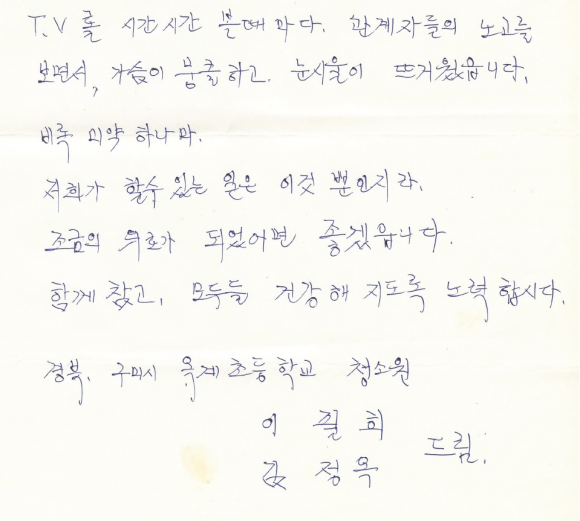 T.V 롤 시간시간 볼때마다. 관계자들의 노고를
보면서, 가슴이 뭉클하고. 눈시울이 뜨거웠읍니다.
비록 미약 하나마.
저희가 할수 있는 일은 이것 뿐인지라.
조금의 위로가 되었어면 좋겠읍니다.
함께 참고, 모두들 건강해 지도록 노력 합시다.
경북. 구미시 옥계초등학교 청소원
이 필 희
김 정 옥 드림.